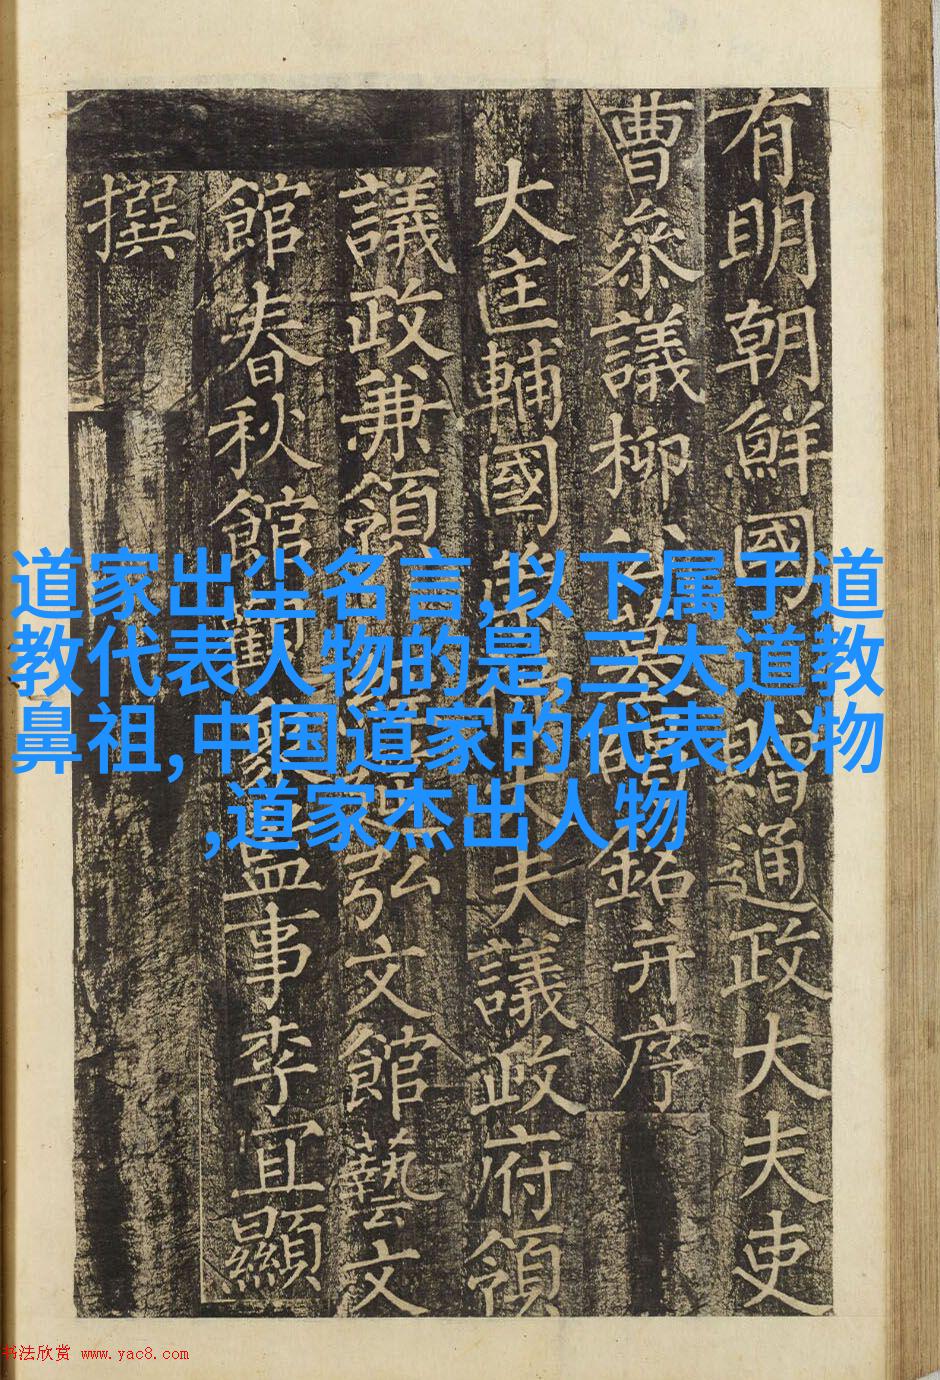 有明朝鮮國
贈通政大夫吏
曹叅議柳公墓碣銘并序
大匡輔國崇祿大夫議政府領
議政兼領
弘文館藝文
館春秋館觀象監事李宜顯
撰
道家出尘名言,以下属于道
教代表人物的是,三大道教
鼻祖,中国道家的代表人物
,道家杰出人物
书法欣赏 www.yac8.com